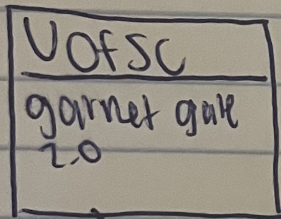 UOFSC
garnet gate
2.0